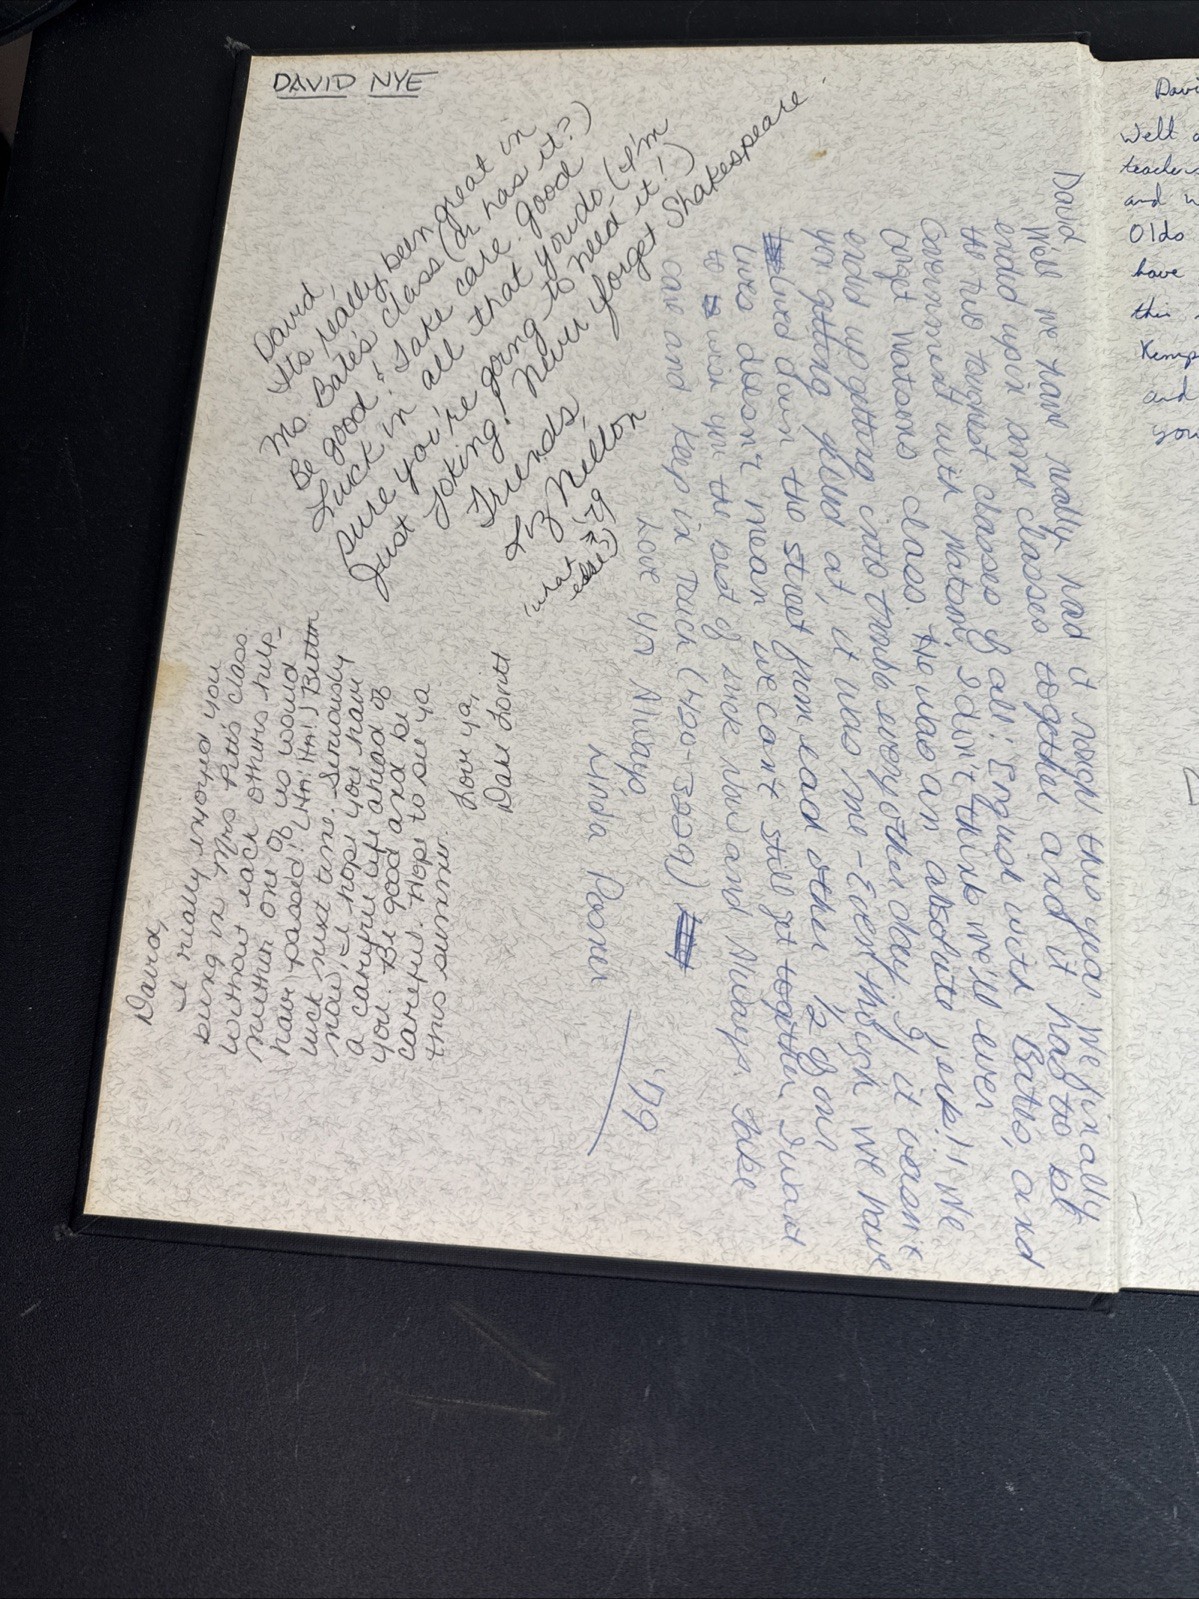 DAVID NYE
David,
It's really been great in
Ms. Bates class (or has it?)
Be good & take care. Good
Luck in all that you do (I'm
sure you're going to need it!)
Just joking! Never forget Shakespeare!
Friends,
Liz Nellon
'79
(what
else?)
David,
I really enjoyed you
being in Mrs Pitt's class.
Without each others help-
neither one of us would
have passed! (Ha! Ha!) Better
luck next time. Seriously
now, I hope you have
a carefree life ahead of
you. Be good and be
careful. Hope to see ya
this summer.
Love ya,
Dale Lovitt
David
Well we have really had it rough this year. We finally
ended up in some classes together and it had to be
the two toughest classes of all! English with Bates, and
Government with Watson, I don't think we'll ever
forget Watsons class. He was an absolute jerk!! We
ended up getting into trouble every other day. If it wasn't
you getting yelled at, it was me - Even though we have
lived down the street from each other ½ of our
lives doesn't mean we can't still get together. I want
to wish you the best of luck now and Always. Take
care and keep in touch (420-3229)
Love ya Always
Linda
'79
Davi
Well a
teachers
and w
Olds
have
this
Kemp
and
you